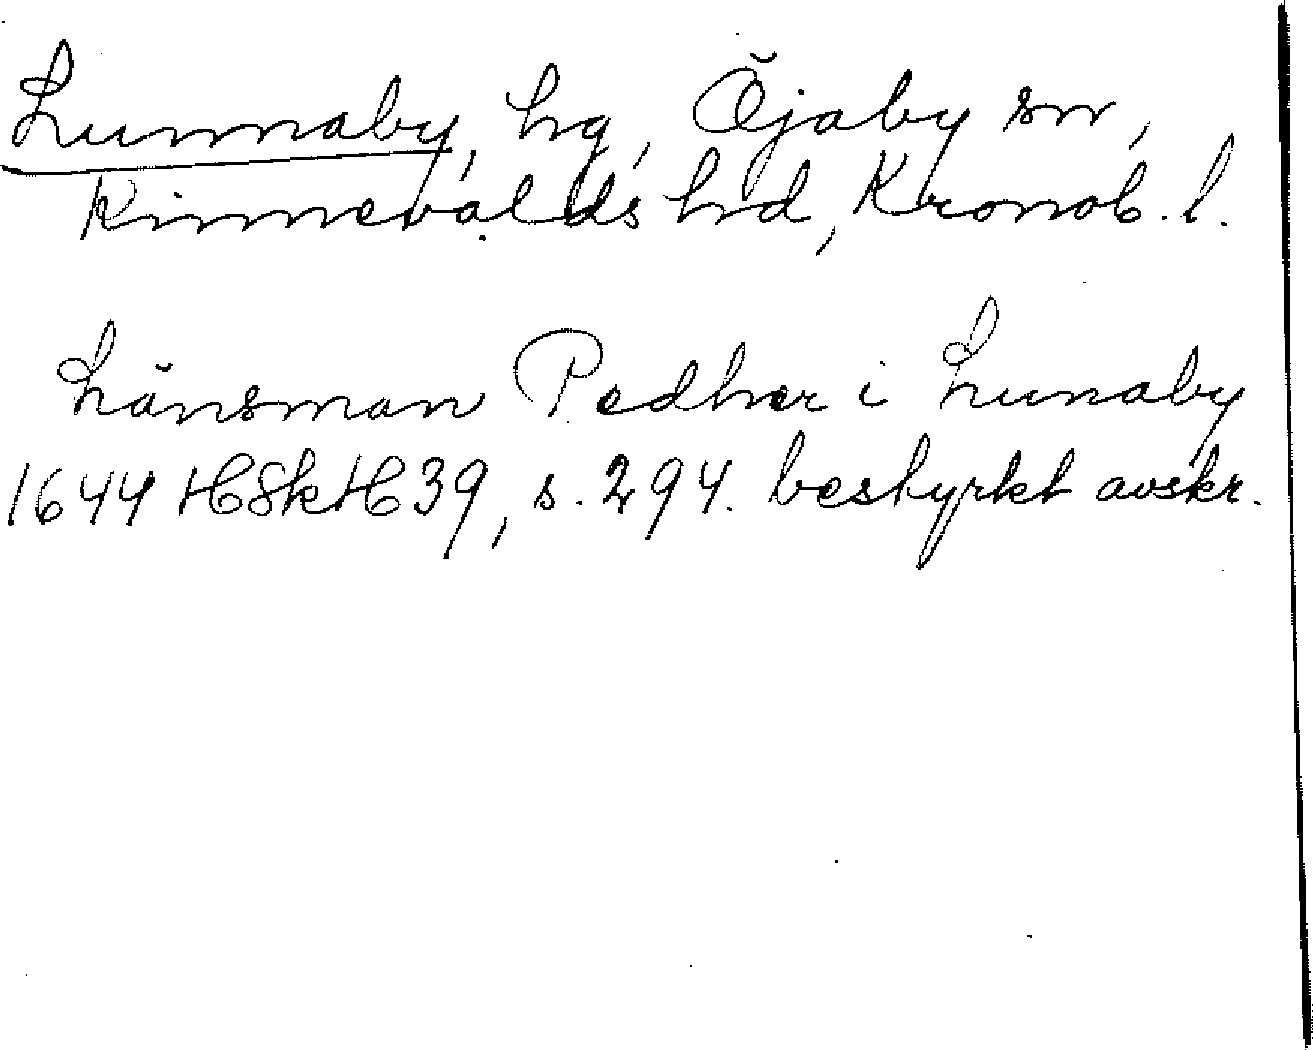 Lunnaby, hg, Öjaby sn,
Kinnevalds hd, Kronob. l.
Länsman Pedher i Lunaby
1644 HSkH 39, s. 294. bestyrkt avskr.